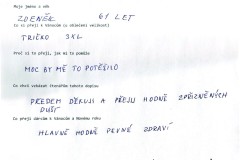 Moje jméno a věk
ZDENĚK 61 LET
Co si přeji k Vánocům (u oblečení velikosti)
TRIČKO 3XL
Proč si to přeji, jak mi to pomůže
MOC BY MĚ TO POTĚŠILO
Co chci vzkázat čtenářům tohoto dopisu
PŘEDEM DĚKUJI A PŘEJU HODNĚ SPŘÍZNĚNÝCH
DUŠÍ
Co přeji dárcům k Vánocům a Novému roku
HLAVNĚ HODNĚ PEVNÉ ZDRAVÍ